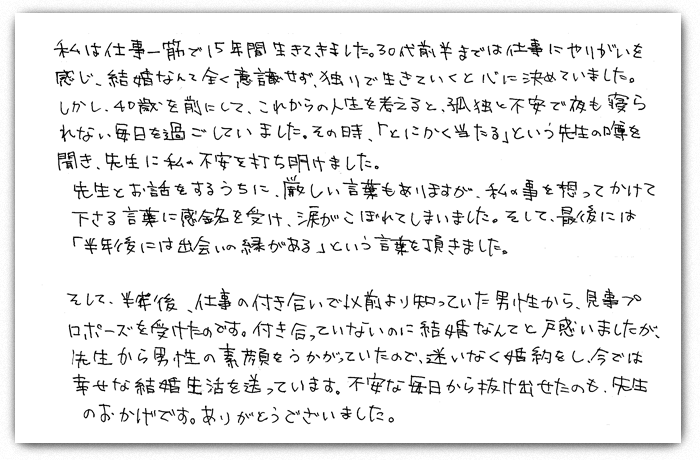 私は仕事一筋で15年間生きてきました。30代前半までは仕事にやりがいを
感じ、結婚なんて全く意識せず、独りで生きていくと心に決めていました。
しかし、40歳を前にして、これからの人生を考えると、孤独と不安で夜も寝ら
れない毎日を過ごしていました。その時、「とにかく当たる」という先生の噂を
聞き、先生に私の不安を打ち明けました。
先生とお話をするうちに、厳しい言葉もありますが、私の事を想ってかけて
下さる言葉に感銘を受け、涙がこぼれてしまいました。そして、最後には
「半年後には出会いの縁がある」という言葉を頂きました。
そして、半年後、仕事の付き合いで以前より知っていた男性から、見事プ
ロポーズを受けたのです。付き合っていないのに結婚なんてと戸惑いましたが、
先生から男性の素顔をうかがっていたので、迷いなく婚約をし、今では
幸せな結婚生活を送っています。不安な毎日から抜け出せたのも、先生
のおかげです。ありがとうございました。